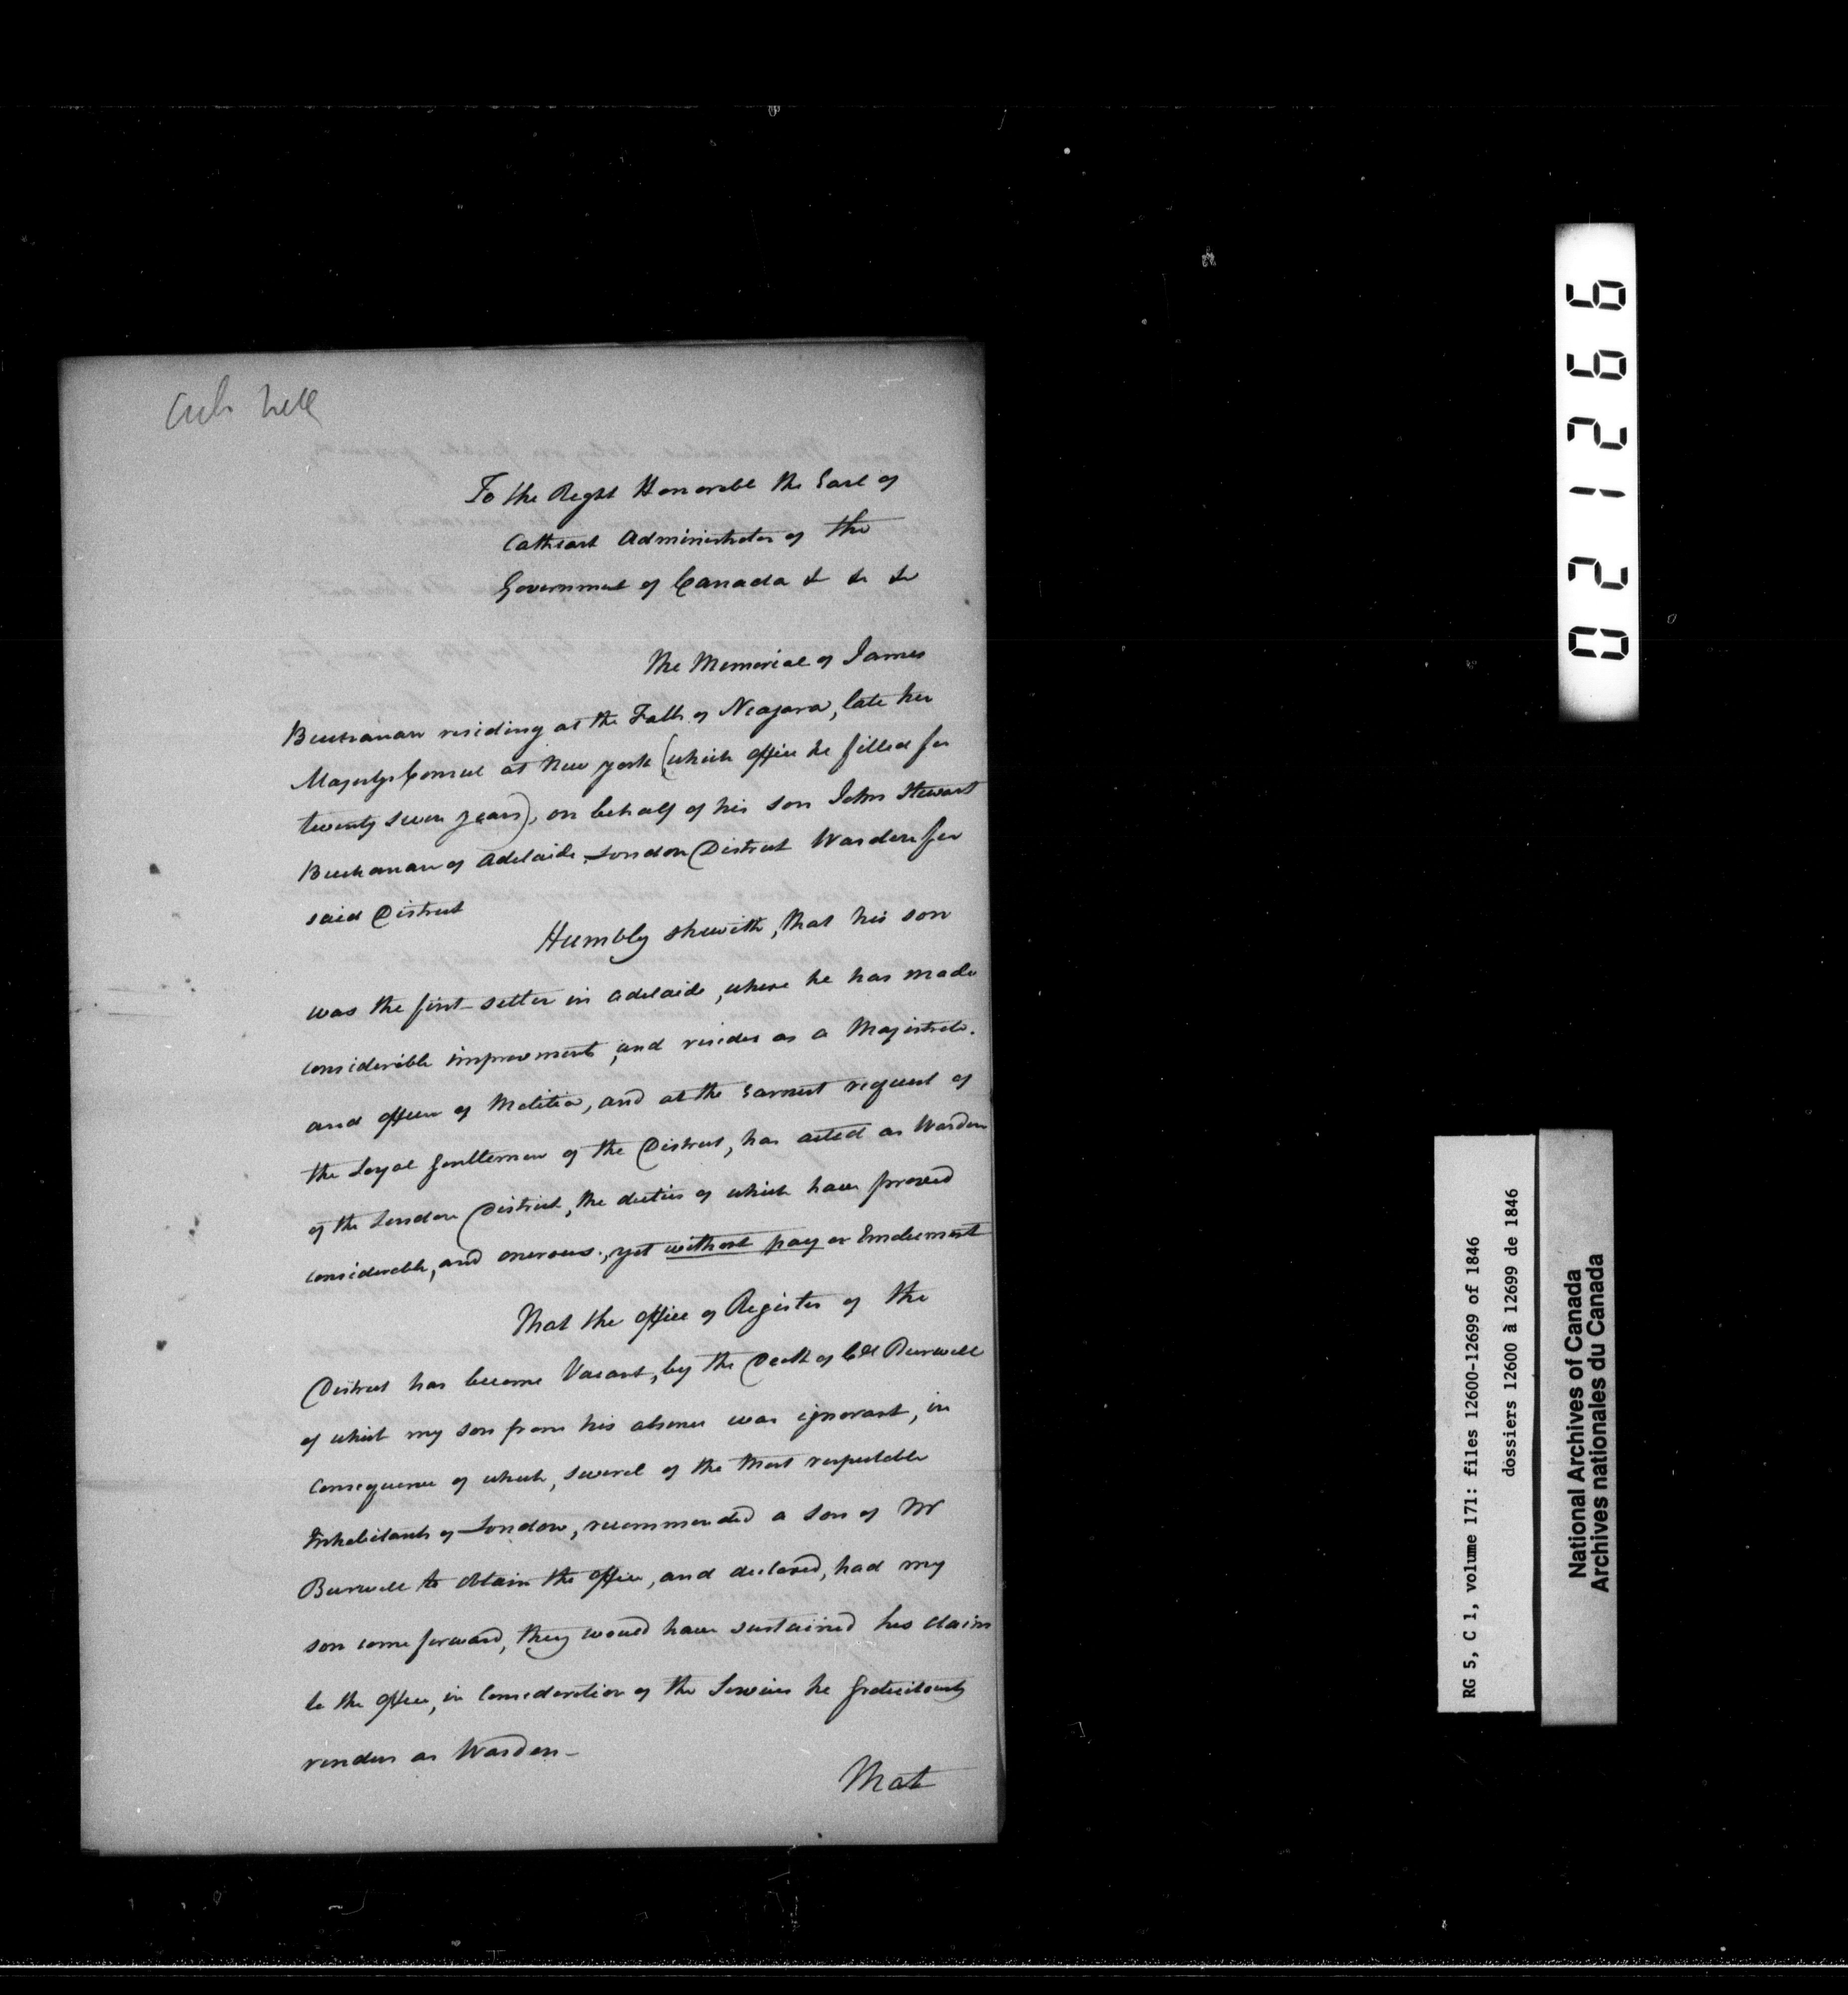 To the Right Honorable the Earl of
Cathcart Administrator of the
Government of Canada & & &
The Memorial of James
Buchanan residing at the Falls of Niagara, late her
Majestys Consul at New york (which office he filled for
twenty seven years), on behalf of his son John Stewart
Buchanan of Adelaide London District Warden for
said District
Humbly sheweth, that his son
was the first settler in Adelaide, where he has made
considerable improvements, and resides as a Magistrate.
and officer of Militia, and at the earnest request of
the Loyal Gentlemen of the District, has acted as Warden
of the London District, the duties of which have proved
considerable, and onerous, yet without pay or Emolument
That the office of Register of the
District has become Vacant, by the Death of Col Burwell
of which my son from his absence was ignorant, in
consequence of which, several of the most respectable
Inhabitants of London, recommended a son of Mr
Burwell to obtain the office, and declared, had my
son come forward, they would have sustained his claim
to the office, in consideration of the Services he gratuitously
renders as Warden-
That
021266
RG 5, C 1, volume 171: files 12600-12699 of 1846
dossiers 12600 à 12699 de 1846
National Archives of Canada
Archives nationales du Canada